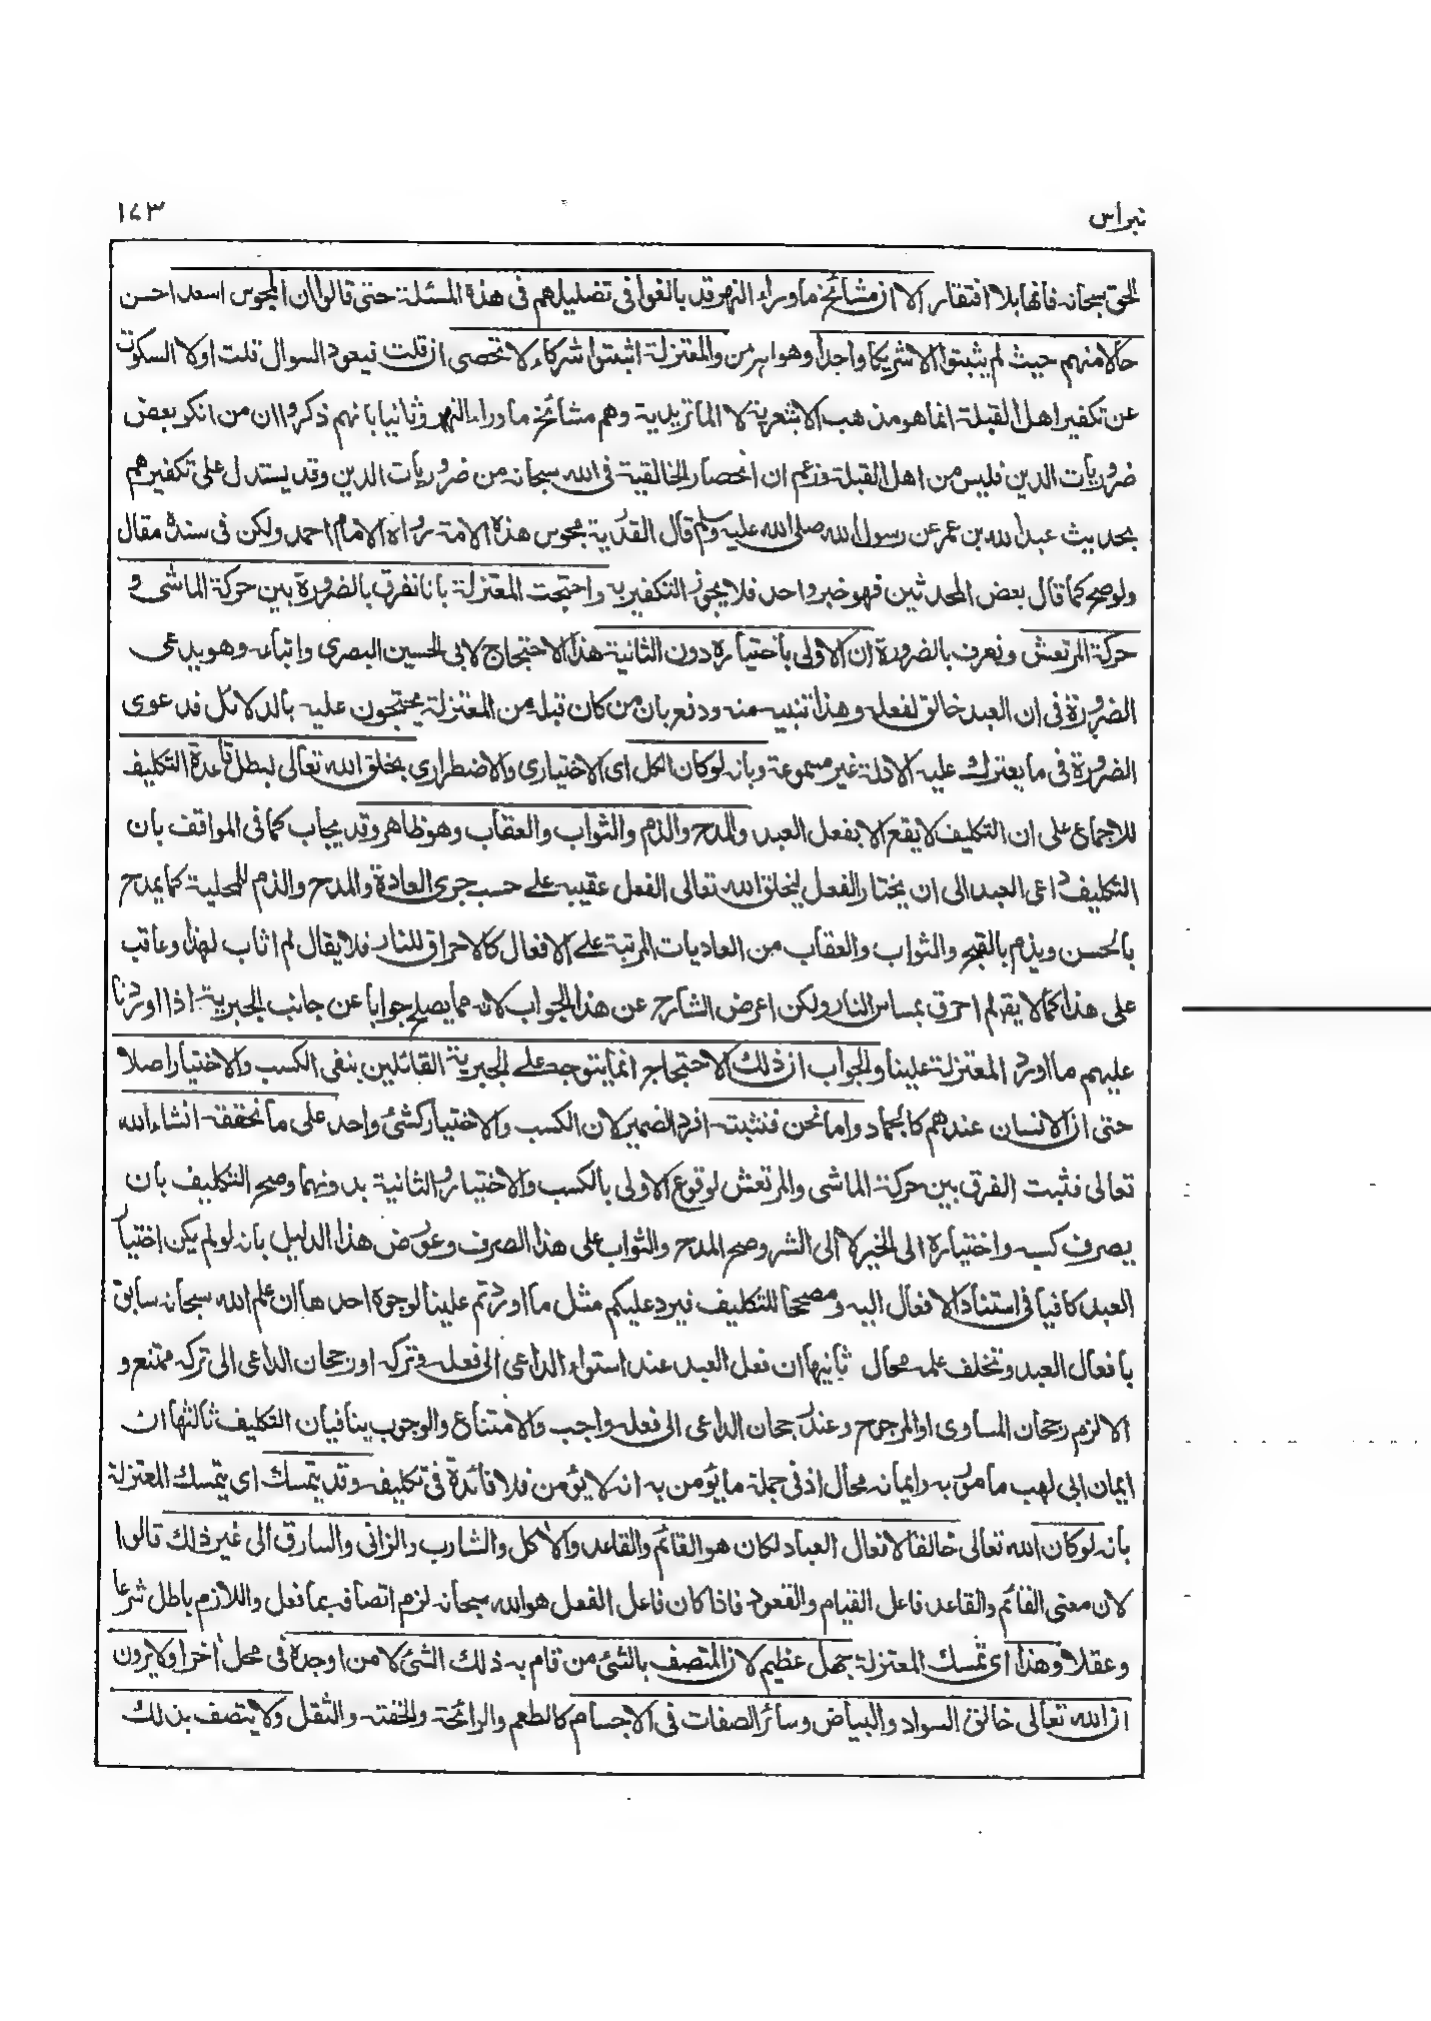 نبراس ١٧٣
الحق سبحانه فانها بلا افتقار الا ان مشائخ ما وراء النهر قد بالغوا فى تضليلهم فى هذه المسئلة حتى قالوا ان المجوس اسعد احسن
حالا منهم حيث لم يثبتوا الا شريكا واحدا وهو اهرمن والمعتزلة اثبتوا شركاء لا تحصى ان قلت فيعود السوال قلت اولا السكوت
عن تكفير اهل القبلة انما هو مذهب الاشعرية لا الماتريدية وهم مشائخ ما وراء النهر وثانيا بانهم ذكروا ان من انكر بعض
ضروريات الدين فليس من اهل القبلة وزعم ان انحصار الخالقية فى الله سبحانه من ضروريات الدين وقد يستدل على تكفيرهم
بحديث عبد الله بن عمر عن رسول الله صلى الله عليه وسلم قال القدرية مجوس هذه الامة رواه الامام احمد ولكن فى سنده مقال
ولو صح كما قال بعض المحدثين فهو خبر واحد فلا يجوز التكفير به واحتجت المعتزلة بانا نفرق بالضرورة بين حركة الماشى و
حركة المرتعش ونعرف بالضرورة ان الاولى باختياره دون الثانية هذا الاحتجاج لابى الحسين البصرى واتباعه وهو يدعى
الضرورة فى ان العبد خالق لفعله وهذا تنبيه منه ودفع بان من كان قبله من المعتزلة يحتجون عليه بالدلائل فدعوى
الضرورة فى ما يعترك عليه الادلة غير مسموعة وبانه لو كان الكل اى الاختيارى والاضطرارى بخلق الله تعالى لبطل قاعدة التكليف
للاجماع على ان التكليف لا يقع الا بفعل العبد والمدح والذم والثواب والعقاب وهو ظاهر وقد يجاب كما فى المواقف بان
التكليف داعى العبد الى ان يختار الفعل ليخلق الله تعالى الفعل عقيبه على حسب جرى العادة والمدح والذم للمحلية كما يمدح
بالحسن ويذم بالقبح والثواب والعقاب من العاديات المرتبة على الافعال كالاحراق للنار فلا يقال لم اثاب لهذا وعاقب
على هذا كما لا يقو لم احرق بمساس النار ولكن اعرض الشارح عن هذا الجواب لانه مما يصلح جوابا عن جانب الجبرية اذا اوردنا
عليهم ما اورد المعتزلة علينا والجواب ان ذلك الاحتجاج انما يتوجه على الجبرية القائلين بنفى الكسب والاختيار اصلا
حتى ان الانسان عندهم كالجماد واما نحن فنثبته افرد الضمير لان الكسب والاختيار كشئ واحد على ما نحققه انشاء الله
تعالى فثبت الفرق بين حركة الماشى والمرتعش لوقوع الاولى بالكسب والاختيار والثانية بدونهما وصح التكليف بان
يصرف كسبه واختياره الى الخير لا الى الشر وصح المدح والثواب على هذا الصرف وعورض هذا الدليل بانه لو لم يكن اختيار
العبد كافيا فى استناد الافعال اليه ومصححا للتكليف فيرد عليكم مثل ما اوردتم علينا لوجوه احدها ان علم الله سبحانه سابق
بافعال العبد وتخلف علمه محال ثانيها ان فعل العبد عند استواء الداعى الى فعله وتركه او رجحان الداعى الى تركه ممتنع و
الا لزم رجحان المساوى او المرجوح وعند رجحان الداعى الى فعله واجب والامتناع والوجوب ينافيان التكليف ثالثها ان
ايمان ابى لهب مامور به وايمانه محال اذ فى جملة ما يؤمن به انه لا يؤمن فلا فائدة فى تكليفه وقد يتمسك اى يتمسك المعتزلة
بانه لو كان الله تعالى خالقا لافعال العباد لكان هو القائم والقاعد والاكل والشارب والزانى والسارق الى غير ذلك قالوا
لان معنى القائم والقاعد فاعل القيام والقعود فاذا كان فاعل الفعل هو الله سبحانه لزم اتصافه بما فعل واللازم باطل شرعا
وعقلا وهذا اى تمسك المعتزلة جهل عظيم لان المتصف بالشئ من قام به ذلك الشئ لا من اوجده فى محل اخر اولا يرون
ان الله تعالى خالق السواد والبياض وسائر الصفات فى الاجسام كالطعم والرائحة والخفته والثقل ولا يتصف بذلك